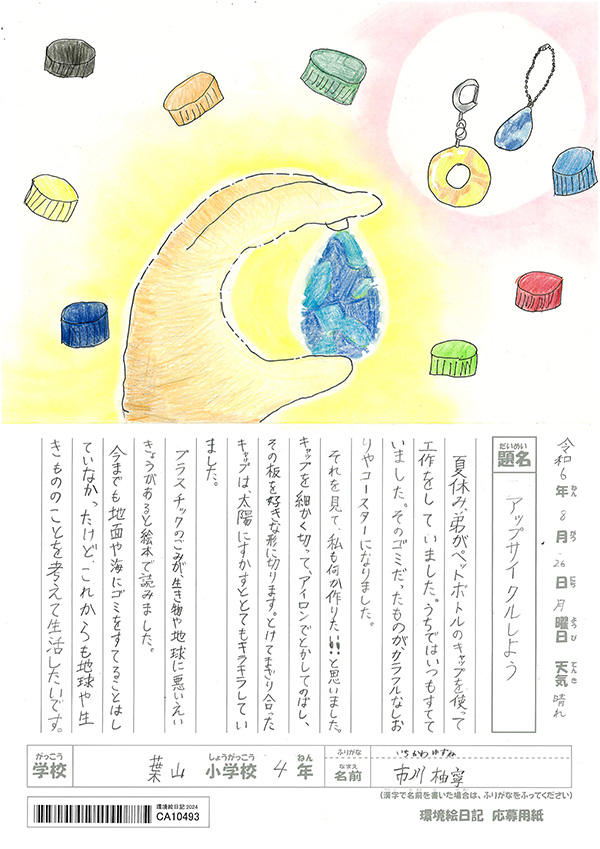 令和6年 8月 26日 月曜日 天気 晴れ
ねん がつ にち ようび てんき
だいめい
題名 アップサイクルしよう
夏休み、弟がペットボトルのキャップを使って
工作をしていました。うちではいつもすてて
いました。そのゴミだったものが、カラフルなしお
りやコースターになりました。
それを見て、私も何か作りたい!!と思いました。
キャップを細かく切って、アイロンでとかしてのばし、
その板を好きな形に切ります。とけてまざり合った
キャップは、太陽にすかすととてもキラキラしてい
ました。
プラスチックのごみが、生き物や地球に悪いえい
きょうがあると絵本で読みました。
今までも地面や海にゴミをすてることはし
ていなかったけど、これからも地球や生
きもののことを考えて生活したいです。
がっこう しょうがっこう ねん
学校 葉山 小学校 4年
ふりがな いちかわ ゆずね
なまえ
名前 市川 柚寧
(漢字で名前を書いた場合は、ふりがなをふってください)
環境絵日記 2024
CA10493
環境絵日記 応募用紙